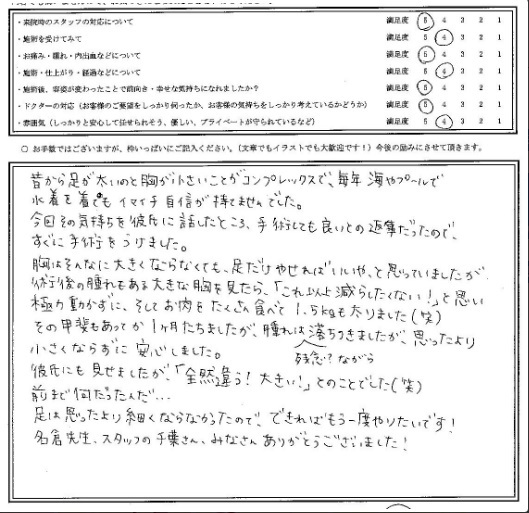 ・来院時のスタッフの対応について 満足度 5 4 3 2 1
・施術を受けてみて 満足度 5 4 3 2 1
・お痛み・腫れ・内出血などについて 満足度 5 4 3 2 1
・施術・仕上がり・経過などについて 満足度 5 4 3 2 1
・施術後、容姿が変わったことで前向き・幸せな気持ちになれましたか？ 満足度 5 4 3 2 1
・ドクターの対応（お客様のご要望をしっかり伺ったか、お客様の気持ちをしっかり考えているかどうか） 満足度 5 4 3 2 1
・雰囲気（しっかりと安心して任せられそう、優しい、プライベートが守られているなど） 満足度 5 4 3 2 1
○ お手数ではございますが、枠いっぱいにご記入ください。（文章でもイラストでも大歓迎です！）今後の励みにさせて頂きます。
昔から足が太いのと胸が小さいことがコンプレックスで、毎年 海やプールで
水着を着てもイマイチ自信が持てませんでした。
今回その気持ちを彼氏に話したところ、手術しても良いとの返事だったので、
すぐに手術をうけました。
胸はそんなに大きくならなくても、足だけやせればいいや、と思っていましたが
術後の腫れもある大きな胸を見たら、「これ以上減らしたくない！」と思い
極力動かずに、そしてお肉をたくさん食べて1.5kgも太りました（笑）
その甲斐もあってか1ヶ月たちましたが、腫れは落ちつきましたが、思ったより
小さくならずに安心しました。 残念？ながら
彼氏にも見せましたが、「全然違う！大きい！」とのことでした（笑）
前まで何だったんだ…
足は思ったより細くならなかったので、できればもう一度やりたいです！
名倉先生、スタッフの千葉さん、みなさんありがとうございました！